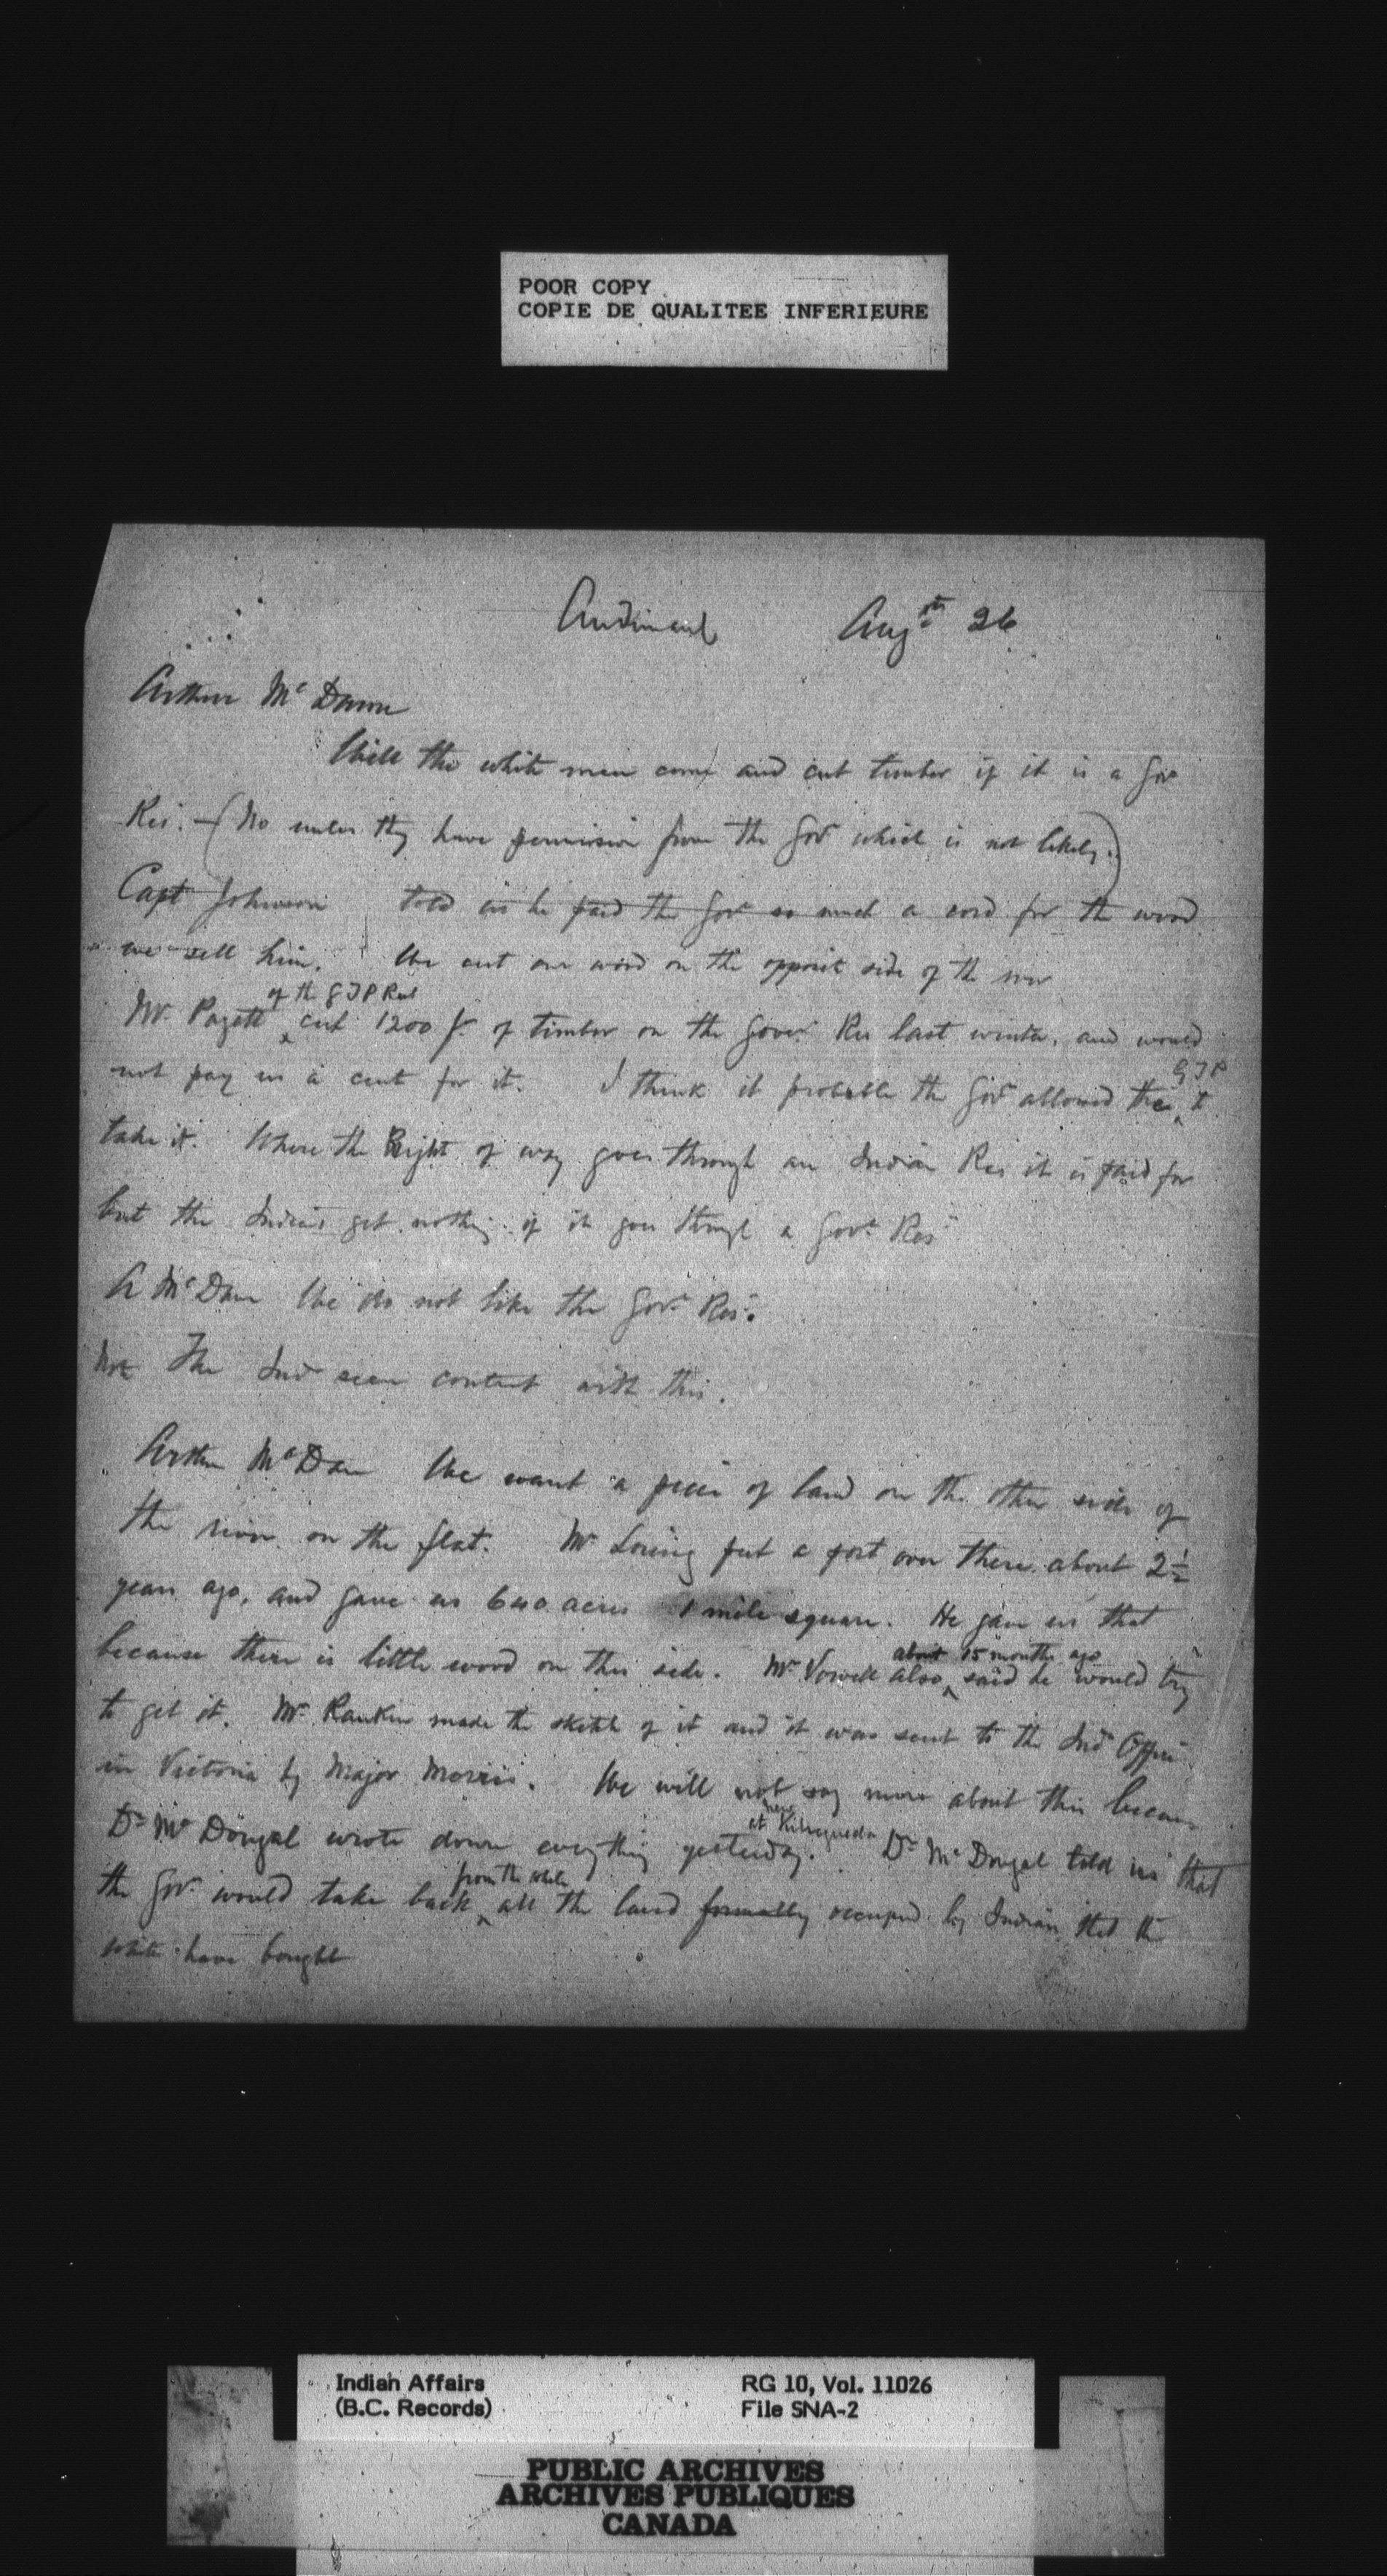 POOR COPY
COPIE DE QUALITEE INFERIEURE
Andimaul Aug 26
Arthur Mc Dame
Will the white men come and cut timber if it is a Gov
Res. - (No unless they have permission from the Govt which is not likely.)
Capt Johnson told us he paid the Govt so much a cord for the wood
we sell him. We cut our wood on the opposite side of the river
Mr. Pagett of the G T P cut 1200 ft of timber on the Govt Res last winter, and would
not pay us a cent for it. I think it probable the Govt allowed the G T P to
take it. Where the Right of way goes through an Indian Res it is paid for
but the Indians get nothing if it goes through a Govt Res
A McDame We do not like the Govt Res.
Note The Inds seem content with this.
Arthur McDame We want a piece of land on the other side of
the river on the flat. Mr Loring put a post over there about 2 1/2
years ago, and gave us 640 acres 1 mile square. He gave us that
because there is little wood on this side. Mr Vowell also about 15 months ago said he would try
to get it. Mr. Rankin made the sketch of it and it was sent to the Ind Office
in Victoria by Major Morris. We will not say more about this because
Dr McDougal wrote down everything yesterday. at Dr McDougal told us that
the Govt would take back from the white all the land formally occupied by Indian that the
white have bought
Indian Affairs
(B.C. Records)
RG 10, Vol. 11026
File SNA-2
PUBLIC ARCHIVES
ARCHIVES PUBLIQUES
CANADA